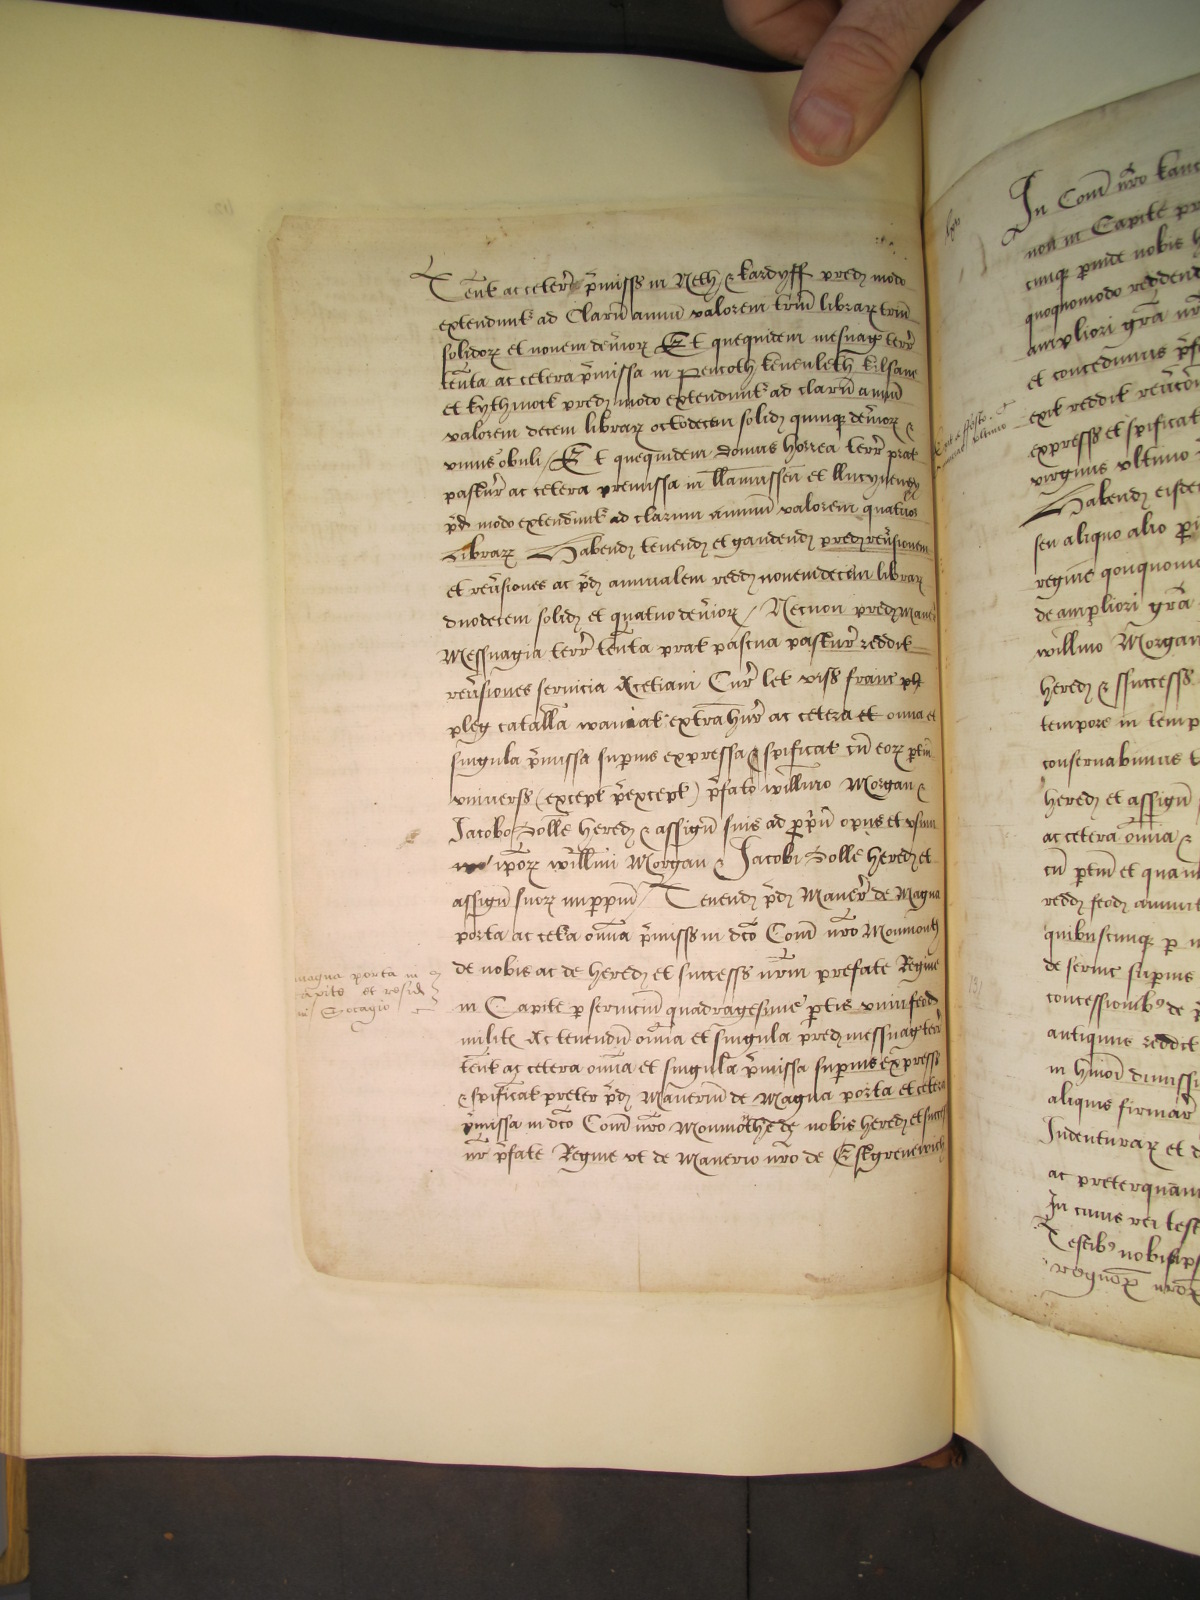 Tent ac ceter p̄miss in Neth & kardyff pred modo
extendunt ad Clarū annū valorem triū librar triū
solidor et novem denior Et quequidem mesuag terr
tenta ac cetera p̄missa in Pencoth kenenleth kilsane
et kythmock pred modo extendunt ad clarū annū
valorem decem librar octodecem solid quinq denior &
unius obuli / Et quequidem domus horrea terr prat
pastur ac cetera premissa in llamissen et
p̄d modo extendunt ad clarum annuū valorem quatuor
Librar Habend tenend et gaudend pred reūsionem
et reūsiones ac p̄d annualem redd novemdecem librar
duodecem solid et quatuor denior / Necnon pred Maner
Messuagia terr tenta prat pascua pastur reddit
reūsiones servicia Acetiam Cur let viss franc pl
pleg catalla waviat extrahur ac cetera et omia et
singula p̄missa superius expressa & spificat cū eor ptin
univers (except p̄except) p̄fato willmo Morgan &
Jacobo Dolle hered & assign suis ad pp̄riū opus et usum
ip̄or willmi Morgan & Jacobi Dolle hered et
assign suor imppm / Tenend p̄d Maner de Magna
porta ac cetera omia p̄miss in dco Com nr̄o Monmouth
de nobis ac de hered et success nr̄m prefate Regine
in Capite p servicium quadragesime ptis uniu feod
militis Ac tenendū omia et singula pred messuag terr
tent ac cetera omia et singula p̄missa superius express
& spificat preter p̄d Manerium de Magna porta et cetera
p̄missa in dco Com nr̄o Monmothe de nobis hered et success
nr̄ p̄fate Regine ut de Manerio nr̄o de Estgrenewich
magna porta in
capite et resid
in Socagio
In Com nr̄o kanc
non in Capite pr
cunq pinde nobis h
quoquomodo reddend
ampliori gr̄a nr̄
et concedimus p̄s
exit reddit revenc
express et spificat
virginis ultimo
Habend eisd
seu aliquo alio p
regine
de ampliori gr̄a
willmo Morgan
hered & success
tempore in temp
conservabimus
hered et assign
ac cetera omia &
cū ptin et quam
redd feod annuit
quibuscunq p n
de servic superius
concessionibus de p
antiquus reddit
in hmoi dimissi
aliquis firmar
Indenturar et
ac preterquam
In cuius rei test
Testibus nobisips
regnor nror